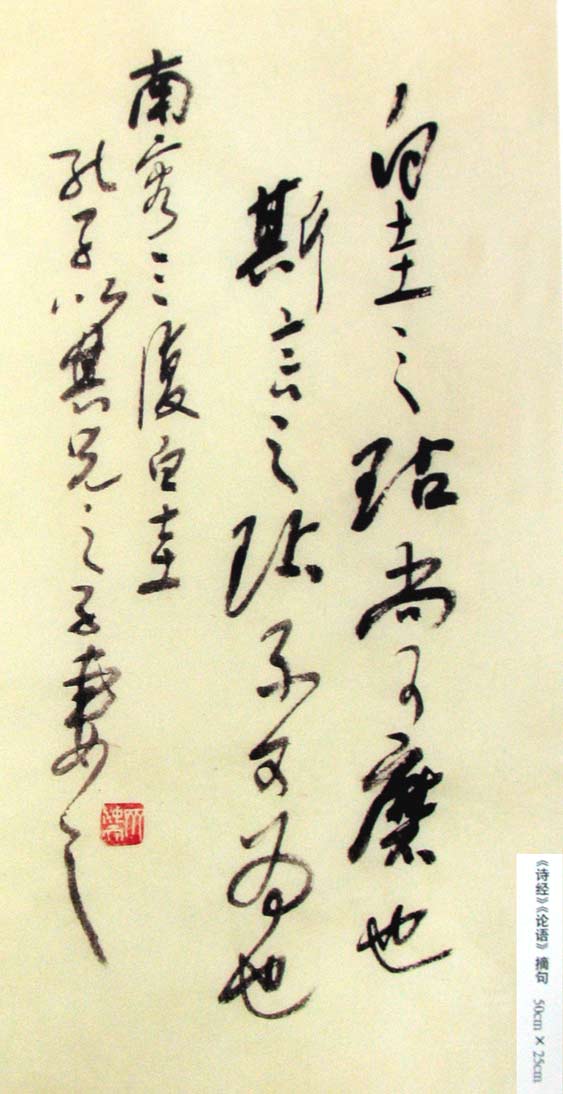 白圭之玷尚可磨也
斯言之玷不可为也
南容三復白圭
孔子以其兄之子妻之
《诗经》《论语》摘句 50cm × 25cm